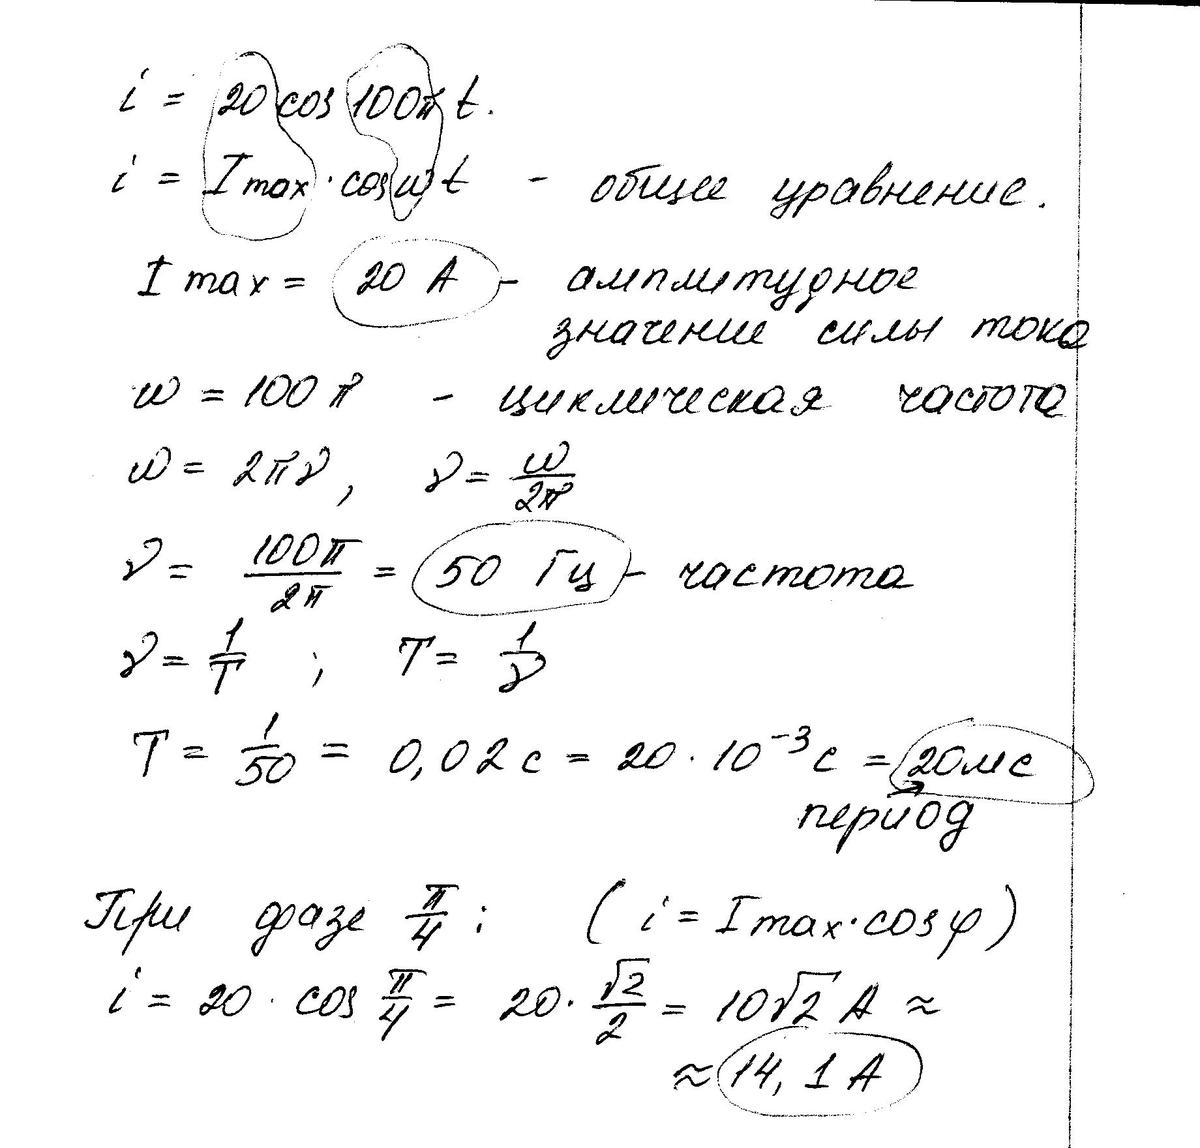 i = 20 cos 100π t.
i = I max · cos ω t - общее уравнение.
I max = 20 А - амплитудное
значение силы тока
ω = 100 π - циклическая частота
ω = 2πν, ν = ω/2π
ν = 100π/2π = 50 Гц - частота
ν = 1/T ; T = 1/ν
T = 1/50 = 0,02 с = 20 · 10⁻³ с = 20 мс
период
При фазе π/4 : ( i = I max · cos φ )
i = 20 · cos π/4 = 20 · √2/2 = 10√2 А ≈
≈ 14,1 А